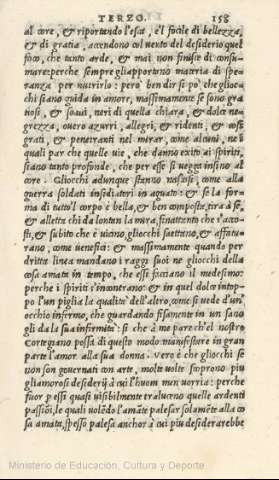 TERZO. 158
al core, & riportando l'esca, e'l focile di bellezza,
& di gratia, accendono col vento del desiderio quel
foco, che tanto arde, & mai non finisce di consu-
mare: perche sempre gli apportano materia di spe-
ranza per nutrirlo: però ben dir si pò che gliocc-
hi siano guida in amore, massimamente se sono gra-
tiosi, & soaui, neri di quella chiara, & dolce ne-
grezza, ouero azurri, allegri, & ridenti, & cosi
grati, & penetranti nel mirar, come alcuni, ne i
quali par che quelle uie, che danno exito ai spiriti,
siano tanto profonde, che per esse si uegga insino al
core. Gliocchi adunque stanno nascosi, come alla
guerra soldati insidiatori in aguato: & se la for-
ma di tutto'l corpo è bella, & ben composta, tira à se,
& alletta chi da lontan la mira, fin a tanto che s'acco-
sti, & subito che è uicino, gliocchi saettano, & affatu-
rano, come uenefici: & massimamente quando per
dritta linea mandano i raggi suoi ne gliocchi della
cosa amata in tempo, che essi facciano il medesimo:
perche i spiriti s'incontrano: & in quel dolce intop-
po l'un piglia la qualità dell'altro, come si uede d'un'
occhio infermo, che guardando fisamente in un sano
gli da la sua infirmità: si che à me pare che'l nostro
Cortegiano possa di questo modo manifestare in gran
parte l'amor alla sua donna. Vero è che gliocchi se
non son gouernati con arte, molte uolte scoprono piu
gliamorosi desiderij à cui l'huom men uorria: perche
fuor p essi quasi uisibilmente tralucono quelle ardenti
passiõi, le quali volẽdo l'amãte palesar solamẽte alla co
sa amata, spesso palesa anchor à cui piu desiderarebbe
Ministerio de Educación, Cultura y Deporte